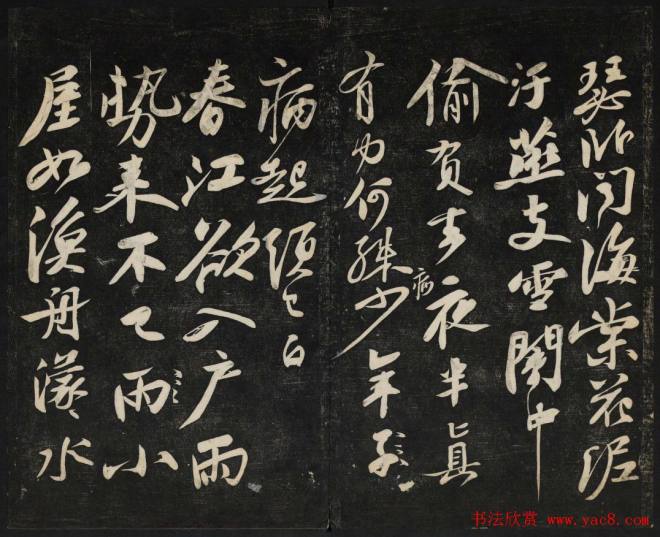 瑟卧闻海棠花泥
汙燕支雪闇中
偷负去夜半真
有力何殊少年子
病
病起须已白
春江欲入户雨
势来不已雨小
屋如渔舟濛水
书法欣赏 www.yac8.com